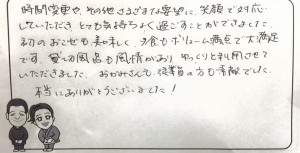 時間変更や、その他さまざまな要望に、笑顔で対応
していただき とても気持ちよく過ごすことができました。
初のおこぜも美味しく、夕食もボリューム満点で大満足
です。貸切風呂も風情があり ゆっくりと利用させて
いただきました。おかみさんも、従業員の方も素敵でした。
本当にありがとうございました！